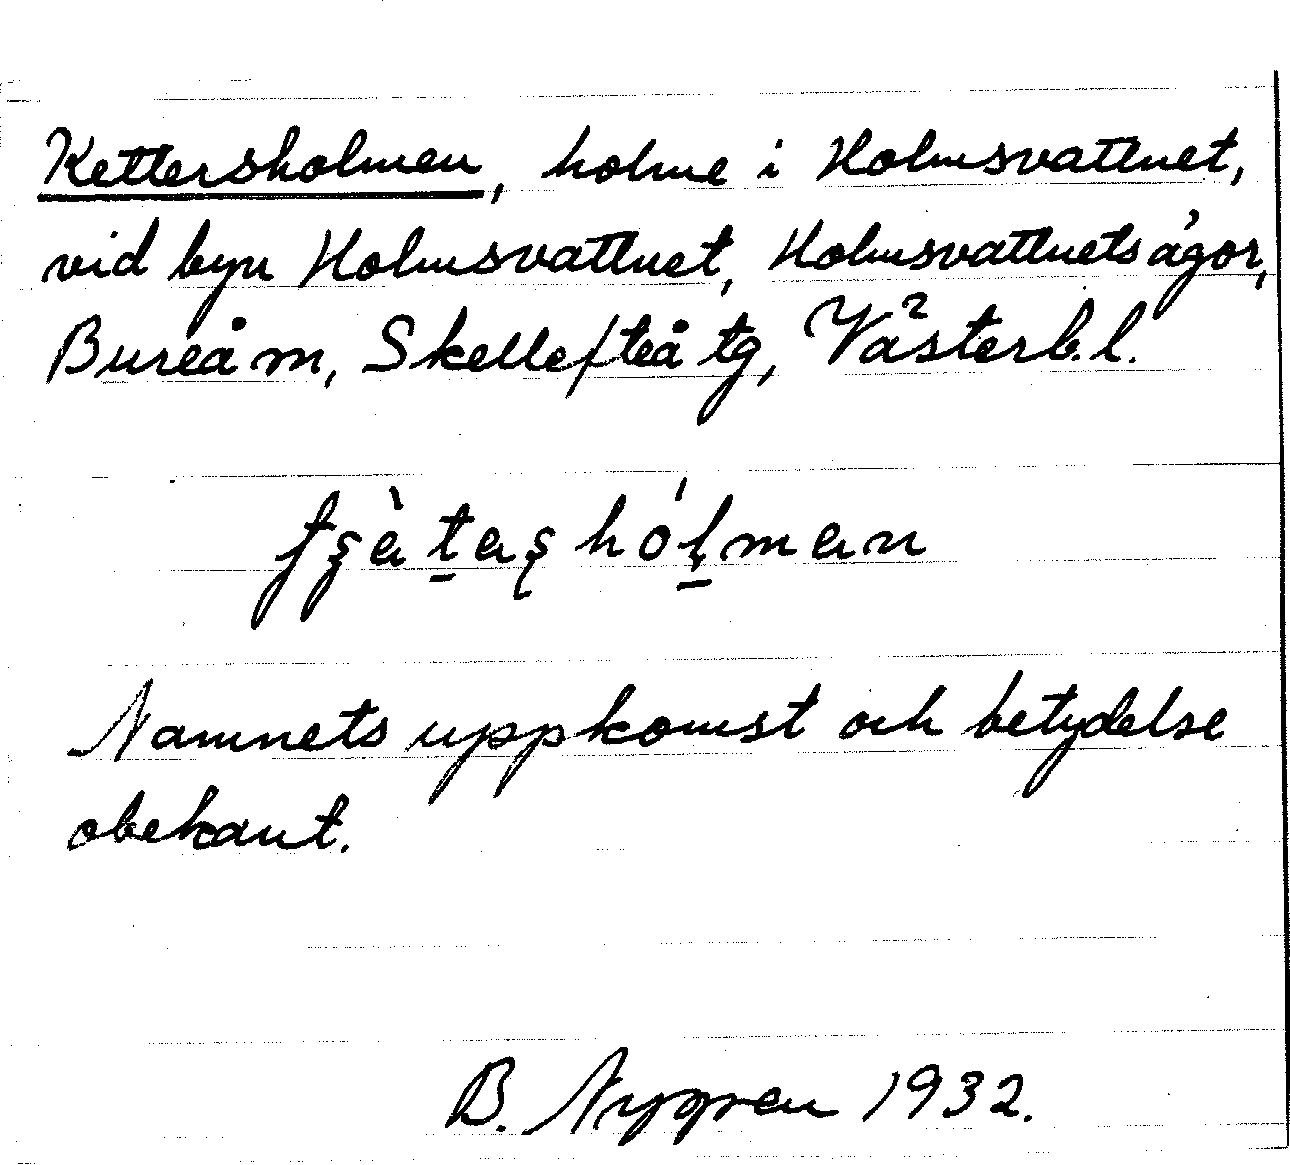 Kettersholmen, holme i Holmsvattnet,
vid byn Holmsvattnet, Holmsvattnets ägor,
Bureå m, Skellefteå tg, Västerb. l.
Namnets uppkomst och betydelse
obekant.
B. Nygren 1932.